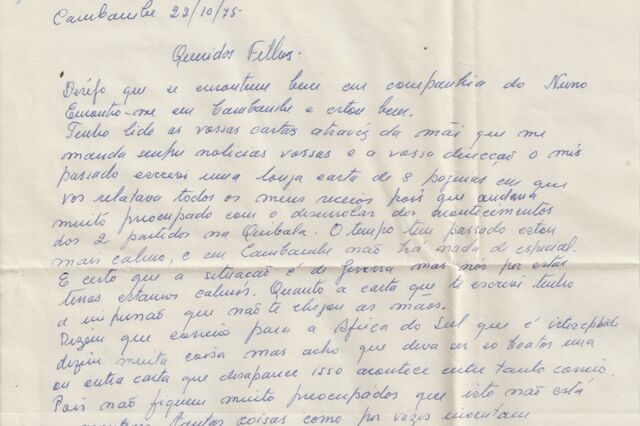 Cambambe 22/10/75-
Queridos Filhos.
Desejo que se encontem bem em companhia do Nuno
Encontro-me em Cambambe e estou bem.
Tenho lido as vossas cartas através da mãi que me
manda sempre noticias vossas e a vossa direcção o mês
passado escrevi uma longa carta de 8 paginas em que
vos relatava todos os meus receios pois que andava
muito preocupado com o desenrolar dos acontecimentos
dos 2 partidos na Quibala. O tempo tem passado estou
mais calmo, e em Cambambe não há nada de especial.
E certo que a situação é de guerra mas nós por estas
terras estamos calmos. Quanto a carta que te escrevi tenho
a impressão que não te chegou as mãos.
Dizem que correio para a Africa do Sul que é interceptado
dizem muita coisa mas acho que deva ser so boatos uma
ou outra carta que desaparece isso acontece entre tanto correio.
Pois não fiquem muito preocupados que isto não está
tantas coisas como por vezes inventam